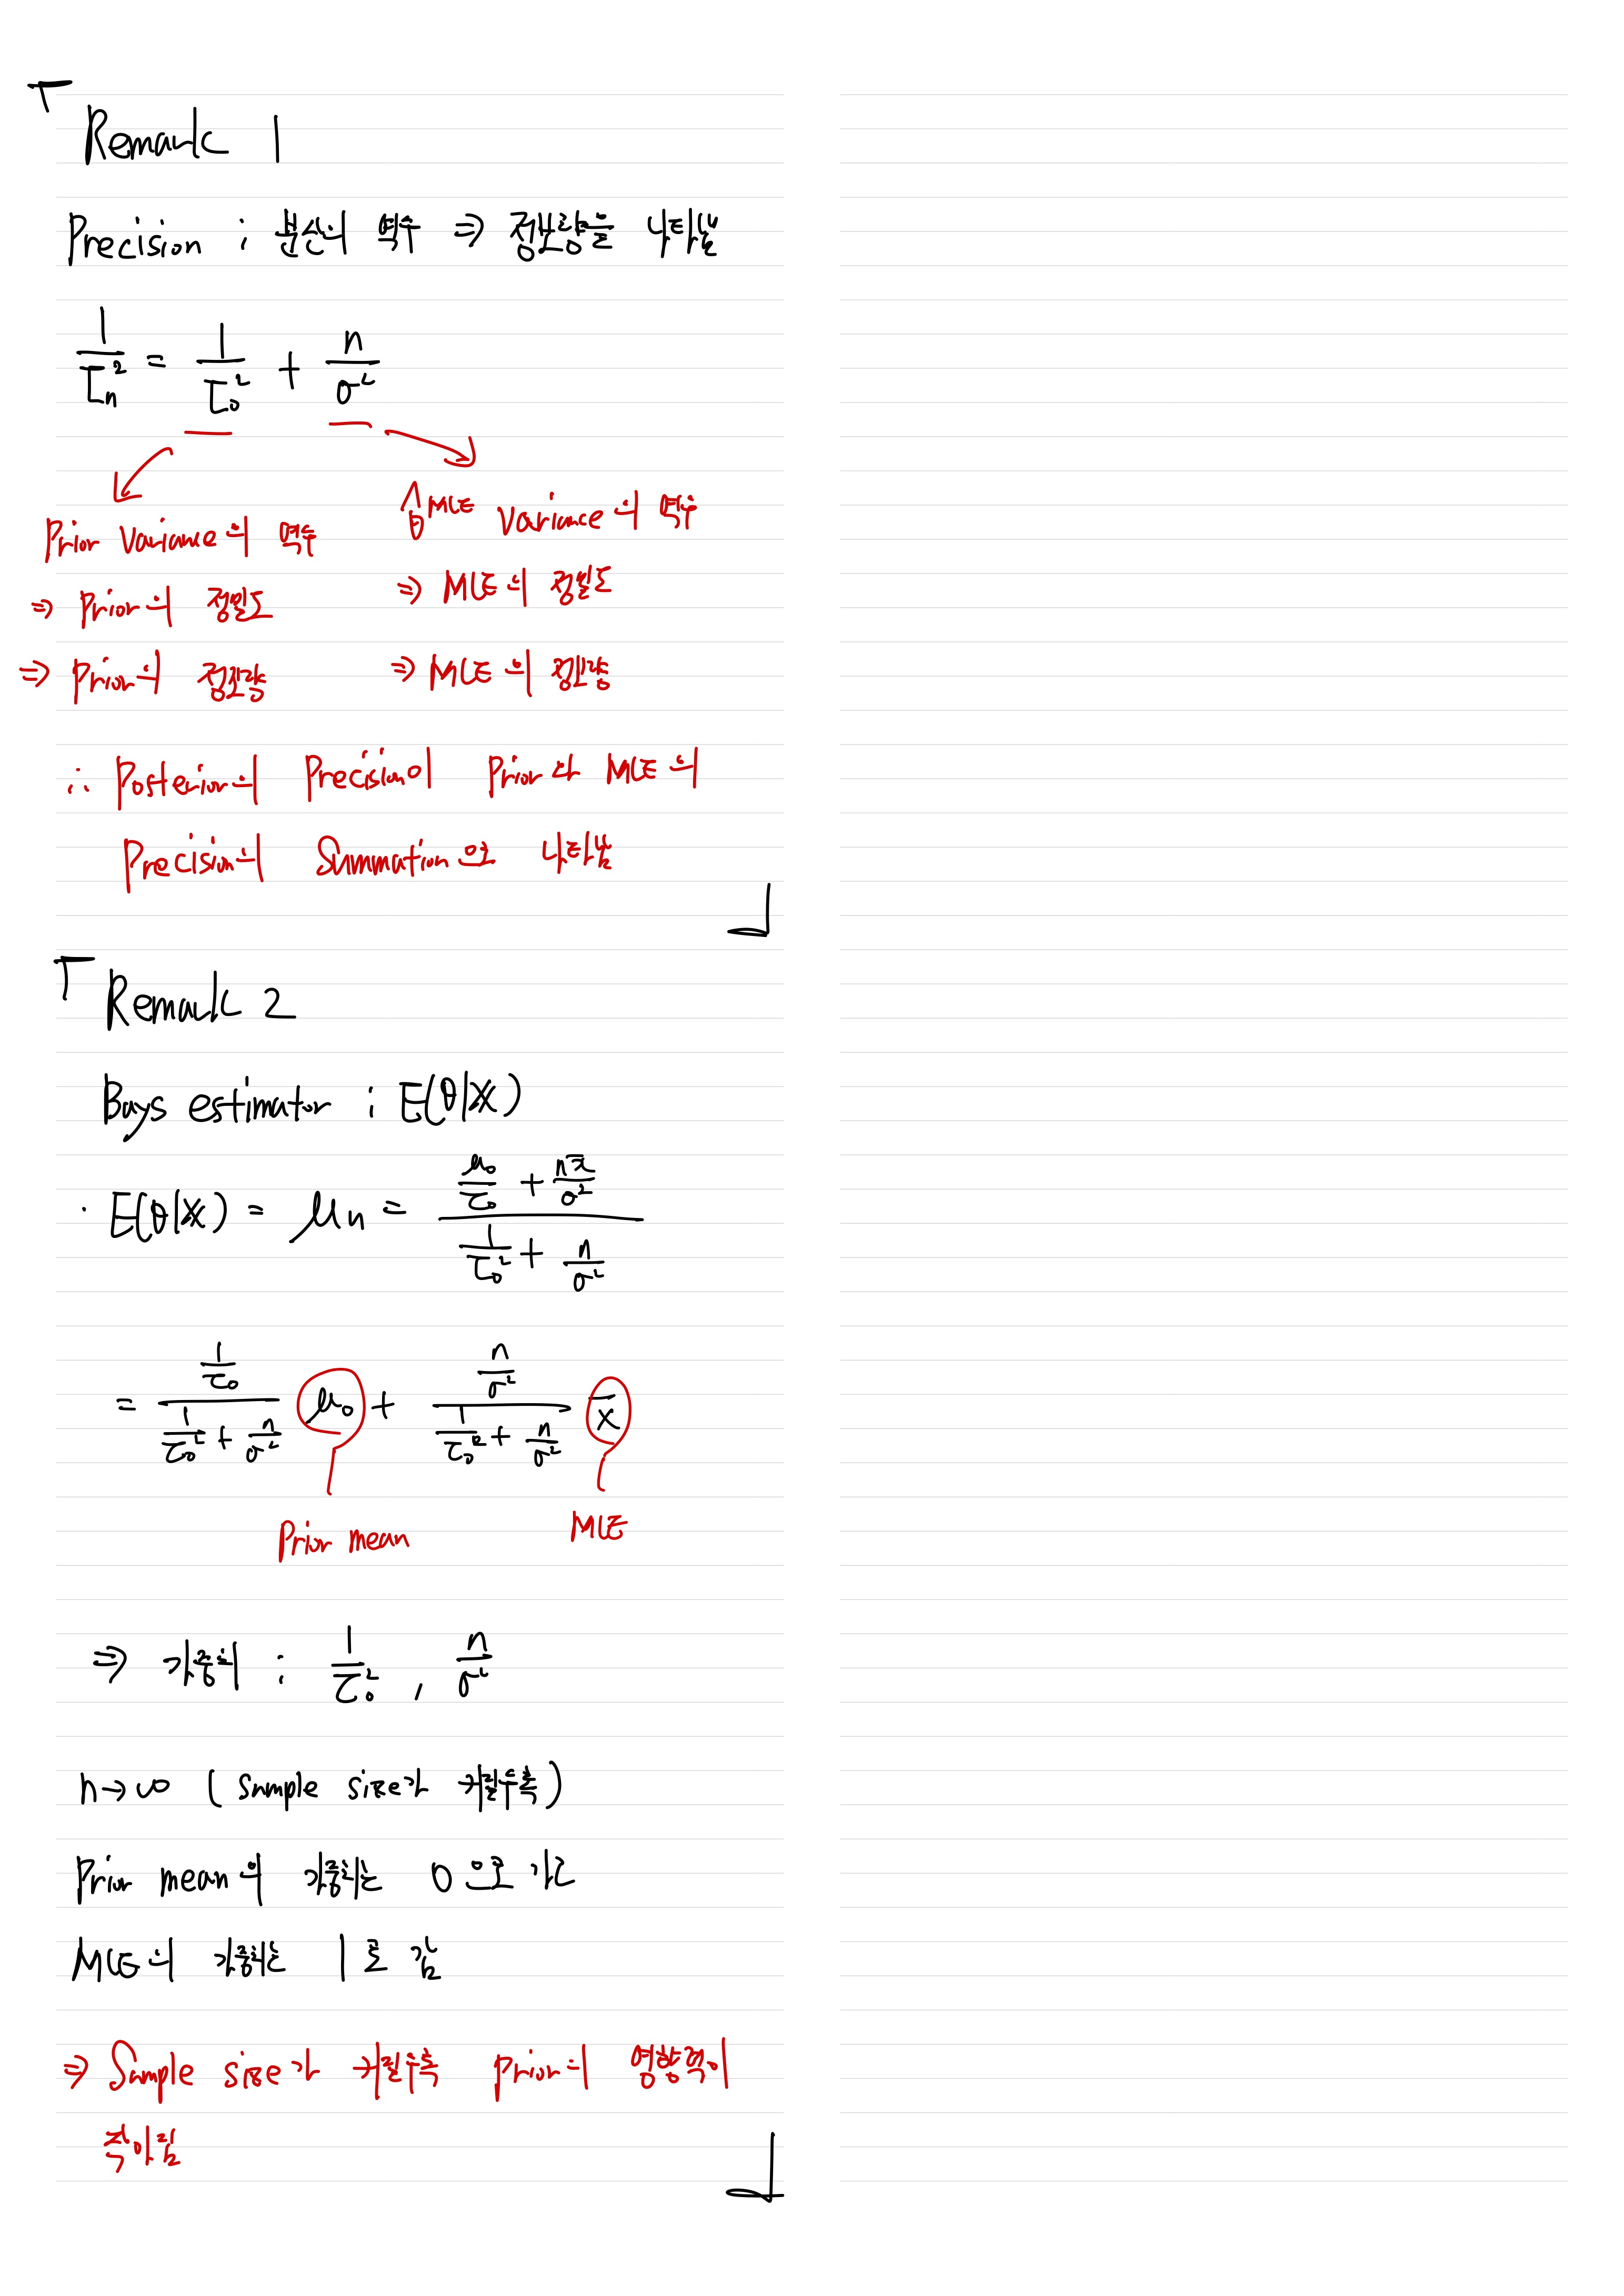 Remark 1
Precision : 분산의 역수 ⇒ 정보량을 나타냄
1/τn² = 1/τ0² + n/σ²
Prior Variance의 역수
θ̂ MLE Variance의 역수
⇒ Prior의 정밀도
⇒ MLE의 정밀도
⇒ Prior의 정보량
⇒ MLE의 정보량
∴ Posterior의 Precision이 Prior와 MLE의
Precision의 Summation으로 나타남
Remark 2
Bays estimator : E(θ|X)
· E(θ|X) = μn = (μ0/τ0 + nx̄/σ²) / (1/τ0² + n/σ²)
= (1/τ0) / (1/τ0² + n/σ²) μ0 + (n/σ²) / (1/τ0² + n/σ²) x̄
Prior mean
MLE
⇒ 가중치 : 1/τ0² , n/σ²
n→∞ ( Sample size가 커질수록)
Prior mean의 가중치는 0으로 가고
MLE의 가중치는 1로 감
⇒ Sample size가 커질수록 Prior의 영향력이
작아짐